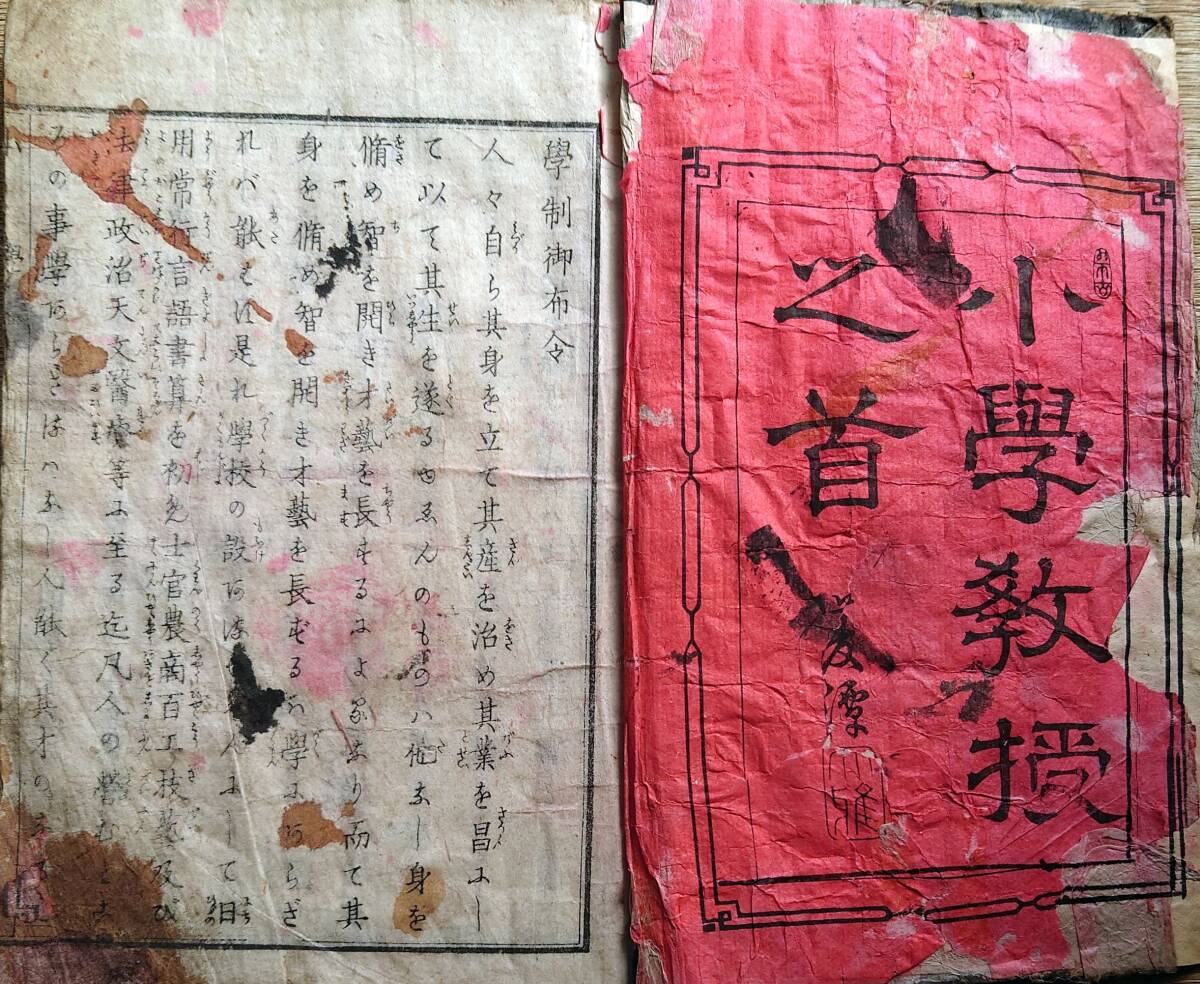 小學敎授
之首
學制御布令
人々自ら其身を立て其産を治め其業を昌にし
て以て其生を遂るゆゑんのものハ他なし身を
脩め智を開き才藝を長ずるによるなり而て其
身を脩め智を開き才藝を長ずるハ學にあらざ
れバ能はず是れ學校の設ある にして日
用常行言語書算を初め士官農商百工技藝及び
法律政治天文醫療等に至る迄凡人の營むところ
の事學あらざるはなし人能く其才の